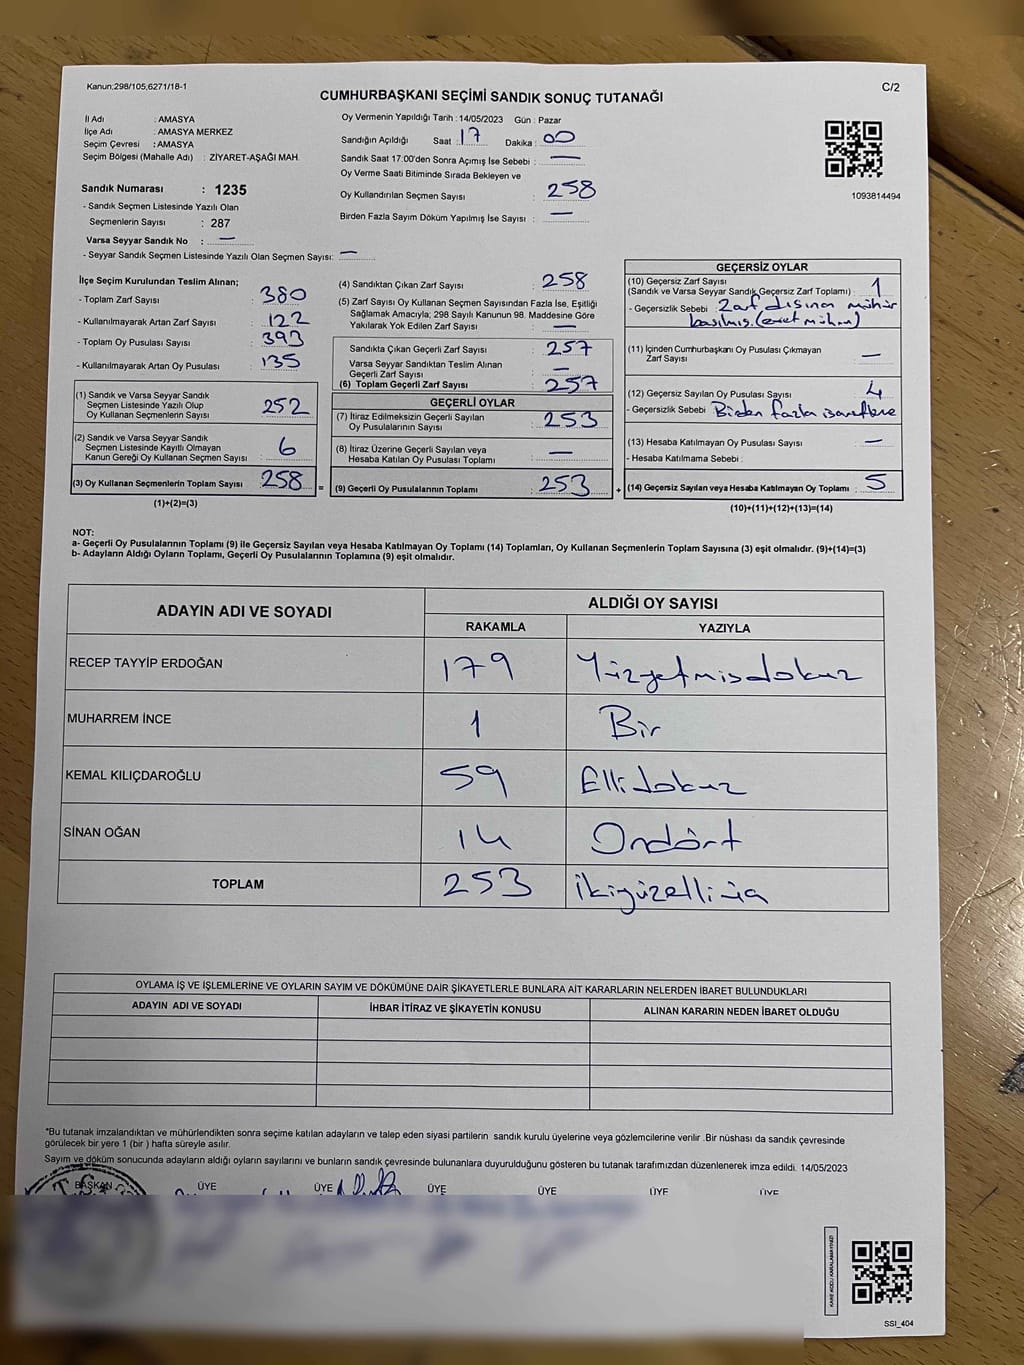 Kanun:298/105,6271/18-1
C/2
CUMHURBAŞKANI SEÇİMİ SANDIK SONUÇ TUTANAĞI
İl Adı : AMASYA
İlçe Adı : AMASYA MERKEZ
Seçim Çevresi : AMASYA
Seçim Bölgesi (Mahalle Adı) : ZİYARET-AŞAĞI MAH.
Sandık Numarası : 1235
- Sandık Seçmen Listesinde Yazılı Olan
Seçmenlerin Sayısı : 287
Varsa Seyyar Sandık No : —
- Seyyar Sandık Seçmen Listesinde Yazılı Olan Seçmen Sayısı: —
Oy Vermenin Yapıldığı Tarih : 14/05/2023 Gün : Pazar
Sandığın Açıldığı Saat : 17 Dakika : 00
Sandık Saat 17:00'den Sonra Açımış İse Sebebi : —
Oy Verme Saati Bitiminde Sırada Bekleyen ve
Oy Kullandırılan Seçmen Sayısı : 258
Birden Fazla Sayım Döküm Yapılmış İse Sayısı : —
1093814494
İlçe Seçim Kurulundan Teslim Alınan;
- Toplam Zarf Sayısı : 380
- Kullanılmayarak Artan Zarf Sayısı : 122
- Toplam Oy Pusulası Sayısı : 393
- Kullanılmayarak Artan Oy Pusulası : 135
(1) Sandık ve Varsa Seyyar Sandık
Seçmen Listesinde Yazılı Olup
Oy Kullanan Seçmenlerin Sayısı : 252
(2) Sandık ve Varsa Seyyar Sandık
Seçmen Listesinde Kayıtlı Olmayan
Kanun Gereği Oy Kullanan Seçmen Sayısı : 6
(3) Oy Kullanan Seçmenlerin Toplam Sayısı : 258
(1)+(2)=(3)
(4) Sandıktan Çıkan Zarf Sayısı : 258
(5) Zarf Sayısı Oy Kullanan Seçmen Sayısından Fazla İse, Eşitliği
Sağlamak Amacıyla; 298 Sayılı Kanunun 98. Maddesine Göre
Yakılarak Yok Edilen Zarf Sayısı : —
Sandıkta Çıkan Geçerli Zarf Sayısı : 257
Varsa Seyyar Sandıktan Teslim Alınan
Geçerli Zarf Sayısı : —
(6) Toplam Geçerli Zarf Sayısı : 257
GEÇERLİ OYLAR
(7) İtiraz Edilmeksizin Geçerli Sayılan
Oy Pusulalarının Sayısı : 253
(8) İtiraz Üzerine Geçerli Sayılan veya
Hesaba Katılan Oy Pusulası Toplamı : —
= (9) Geçerli Oy Pusulalarının Toplamı : 253
GEÇERSİZ OYLAR
(10) Geçersiz Zarf Sayısı
(Sandık ve Varsa Seyyar Sandık Geçersiz Zarf Toplamı) : 1
- Geçersizlik Sebebi : Zarf dışına mühür
basılmış. (evet mührü)
(11) İçinden Cumhurbaşkanı Oy Pusulası Çıkmayan
Zarf Sayısı : —
(12) Geçersiz Sayılan Oy Pusulası Sayısı : 4
- Geçersizlik Sebebi : Birden fazla işaretleme
(13) Hesaba Katılmayan Oy Pusulası Sayısı : —
- Hesaba Katılmama Sebebi :
+ (14) Geçersiz Sayılan veya Hesaba Katılmayan Oy Toplamı : 5
(10)+(11)+(12)+(13)=(14)
NOT:
a- Geçerli Oy Pusulalarının Toplamı (9) ile Geçersiz Sayılan veya Hesaba Katılmayan Oy Toplamı (14) Toplamları, Oy Kullanan Seçmenlerin Toplam Sayısına (3) eşit olmalıdır. (9)+(14)=(3)
b- Adayların Aldığı Oyların Toplamı, Geçerli Oy Pusulalarının Toplamına (9) eşit olmalıdır.
ADAYIN ADI VE SOYADI
ALDIĞI OY SAYISI
RAKAMLA YAZIYLA
RECEP TAYYİP ERDOĞAN 179 Yüzyetmişdokuz
MUHARREM İNCE 1 Bir
KEMAL KILIÇDAROĞLU 59 Ellidokuz
SİNAN OĞAN 14 Ondört
TOPLAM 253 İkiyüzelliüç
OYLAMA İŞ VE İŞLEMLERİNE VE OYLARIN SAYIM VE DÖKÜMÜNE DAİR ŞİKAYETLERLE BUNLARA AİT KARARLARIN NELERDEN İBARET BULUNDUKLARI
ADAYIN ADI VE SOYADI İHBAR İTİRAZ VE ŞİKAYETİN KONUSU ALINAN KARARIN NEDEN İBARET OLDUĞU
*Bu tutanak imzalandıktan ve mühürlendikten sonra seçime katılan adayların ve talep eden siyasi partilerin sandık kurulu üyelerine veya gözlemcilerine verilir .Bir nüshası da sandık çevresinde
görülecek bir yere 1 (bir ) hafta süreyle asılır.
Sayım ve döküm sonucunda adayların aldığı oyların sayılarını ve bunların sandık çevresinde bulunanlara duyurulduğunu gösteren bu tutanak tarafımızdan düzenlenerek imza edildi. 14/05/2023
BAŞKAN ÜYE ÜYE ÜYE ÜYE ÜYE ÜYE
SSI_404